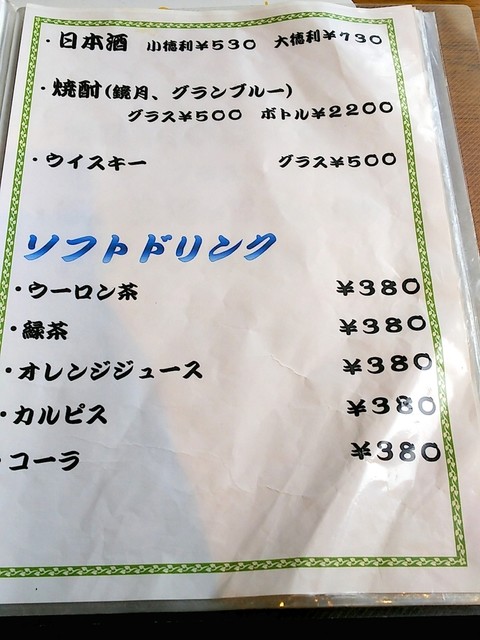 ・日本酒 小徳利¥530 大徳利¥730
・焼酎(鏡月、グランブルー)
グラス¥500 ボトル¥2200
・ウイスキー グラス¥500
ソフトドリンク
・ウーロン茶 ¥380
・緑茶 ¥380
・オレンジジュース ¥380
・カルピス ¥380
・コーラ ¥380